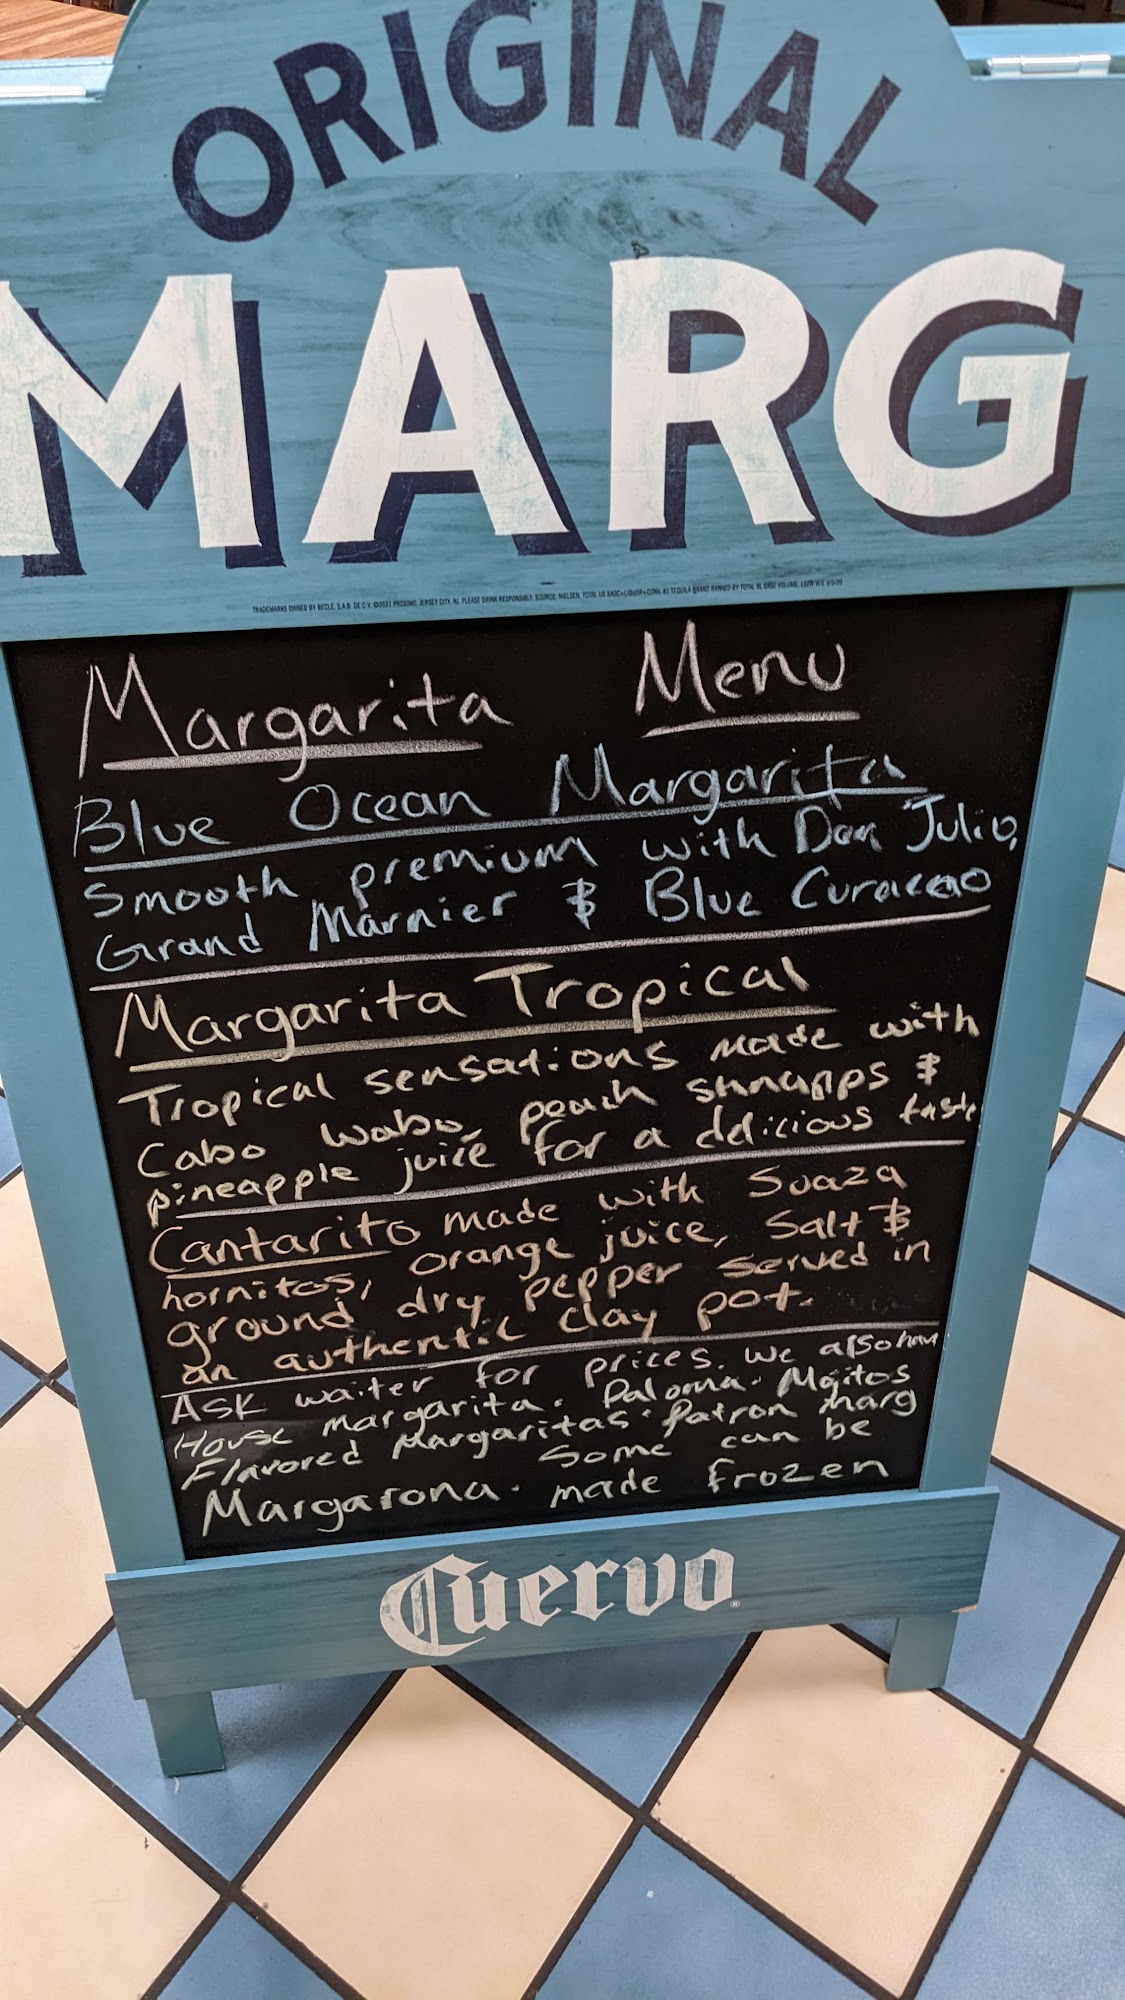 ORIGINAL
MARG
TRADEMARKS OWNED BY BECLE, S.A.B. DE C.V. ©2021 PROXIMO, JERSEY CITY, NJ. PLEASE DRINK RESPONSIBLY. SOURCE: NIELSEN, TOTAL US XAOC+LIQUOR+CONV, #1 TEQUILA BRAND RANKED BY TOTAL 9L CASE VOLUME, L52W W/E
Margarita Menu
Blue Ocean Margarita
Smooth premium with Don Julio,
Grand Marnier & Blue Curacao
Margarita Tropical
Tropical sensations made with
Cabo Wabo, peach shnapps &
pineapple juice for a delicious taste
Cantarito made with Suaza
hornitos, orange juice, Salt &
ground dry pepper served in
an authentic clay pot.
Ask waiter for prices. We also have
House margarita. Paloma. Mojitos
Flavored Margaritas. Patron marg
Margarona. Some can be
made frozen
Cuervo